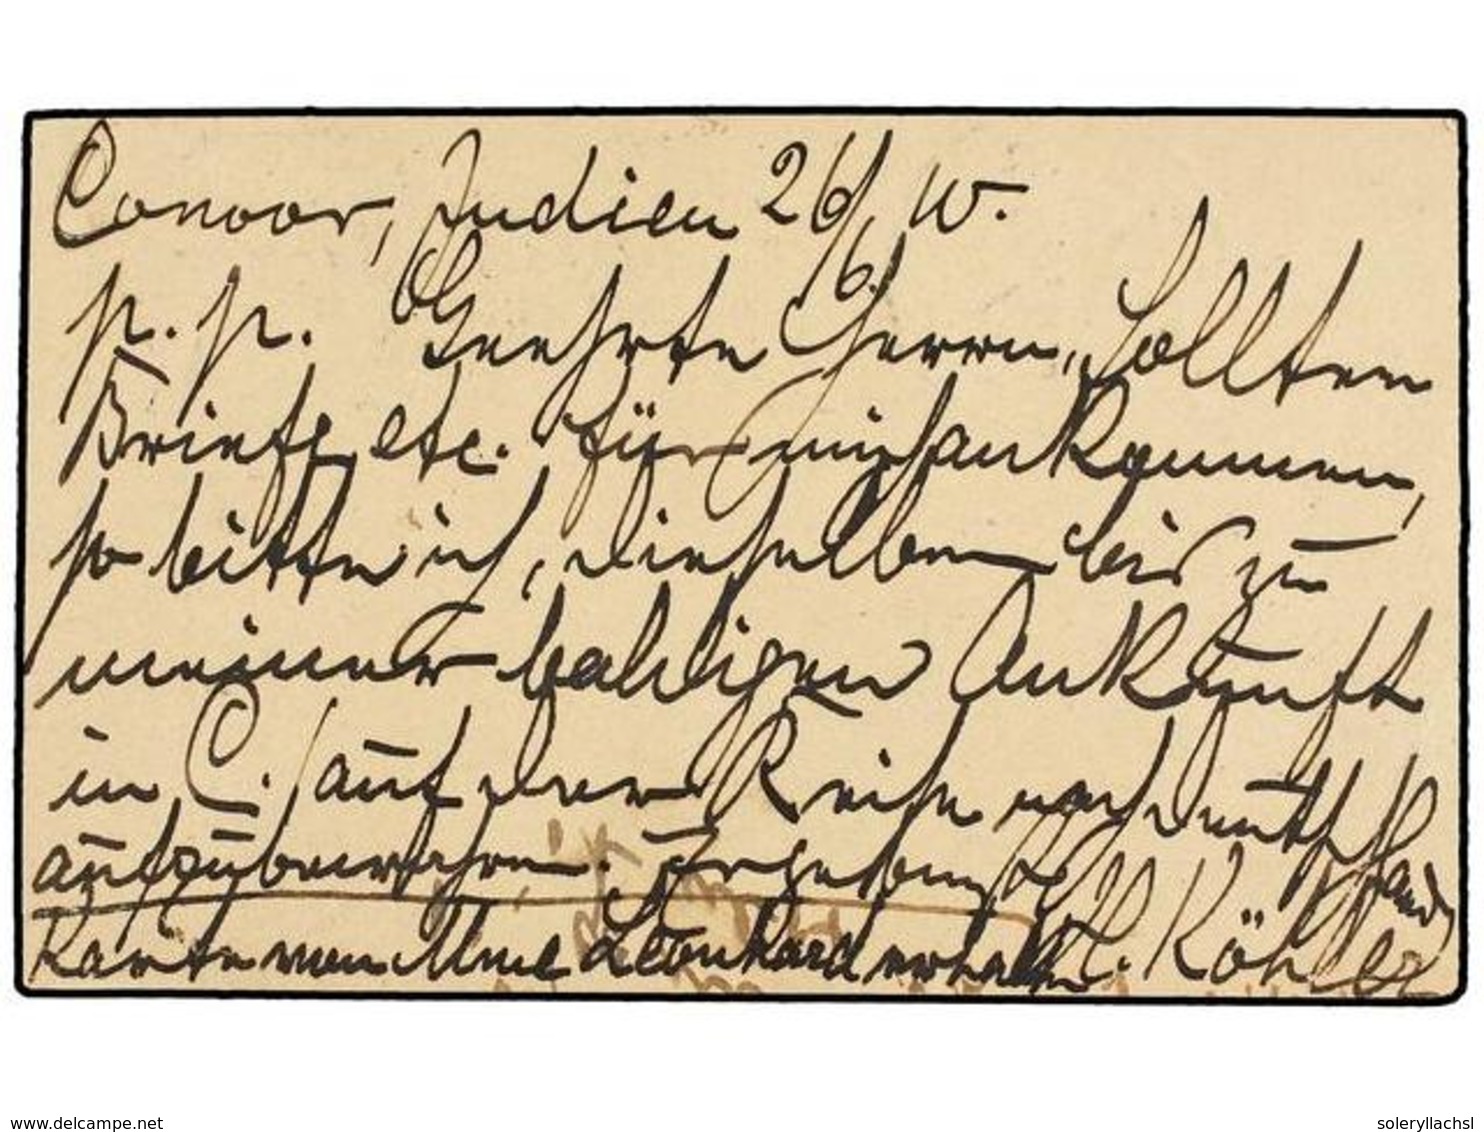 Conoor, Indien 26/6. 10.
p. p. Geehrte Herrn, Sollten
Briefe etc. für mich ankommen,
so bitte ich, dieselben bis zu
meiner baldigen Ankunft
in C. auf der Reise nach Deutschland
aufzubewahren. Ergebenst
Karte von Mme Leonhard erhalten H. Köhler
delcampe.net
soleryllachsl